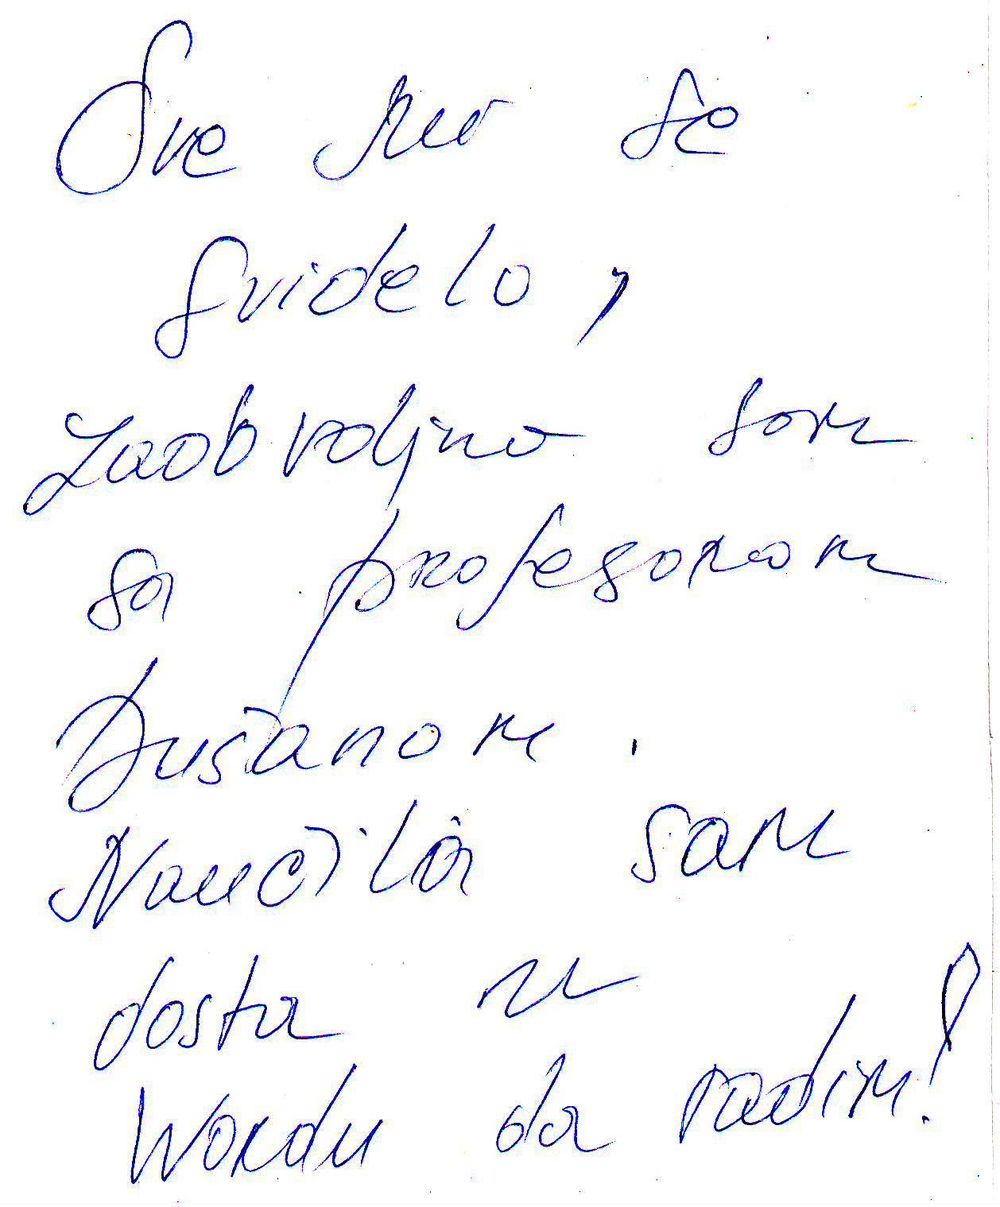 Sve mi se
svidelo,
zadovoljna sam
sa profesorom
Dušanom.
Naučila sam
dosta u
Wordu da radim!